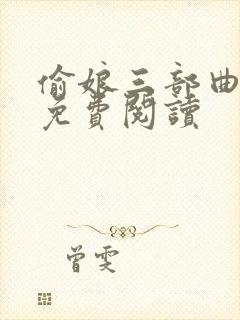 偷娘三部曲
免費閱讀
曾雯